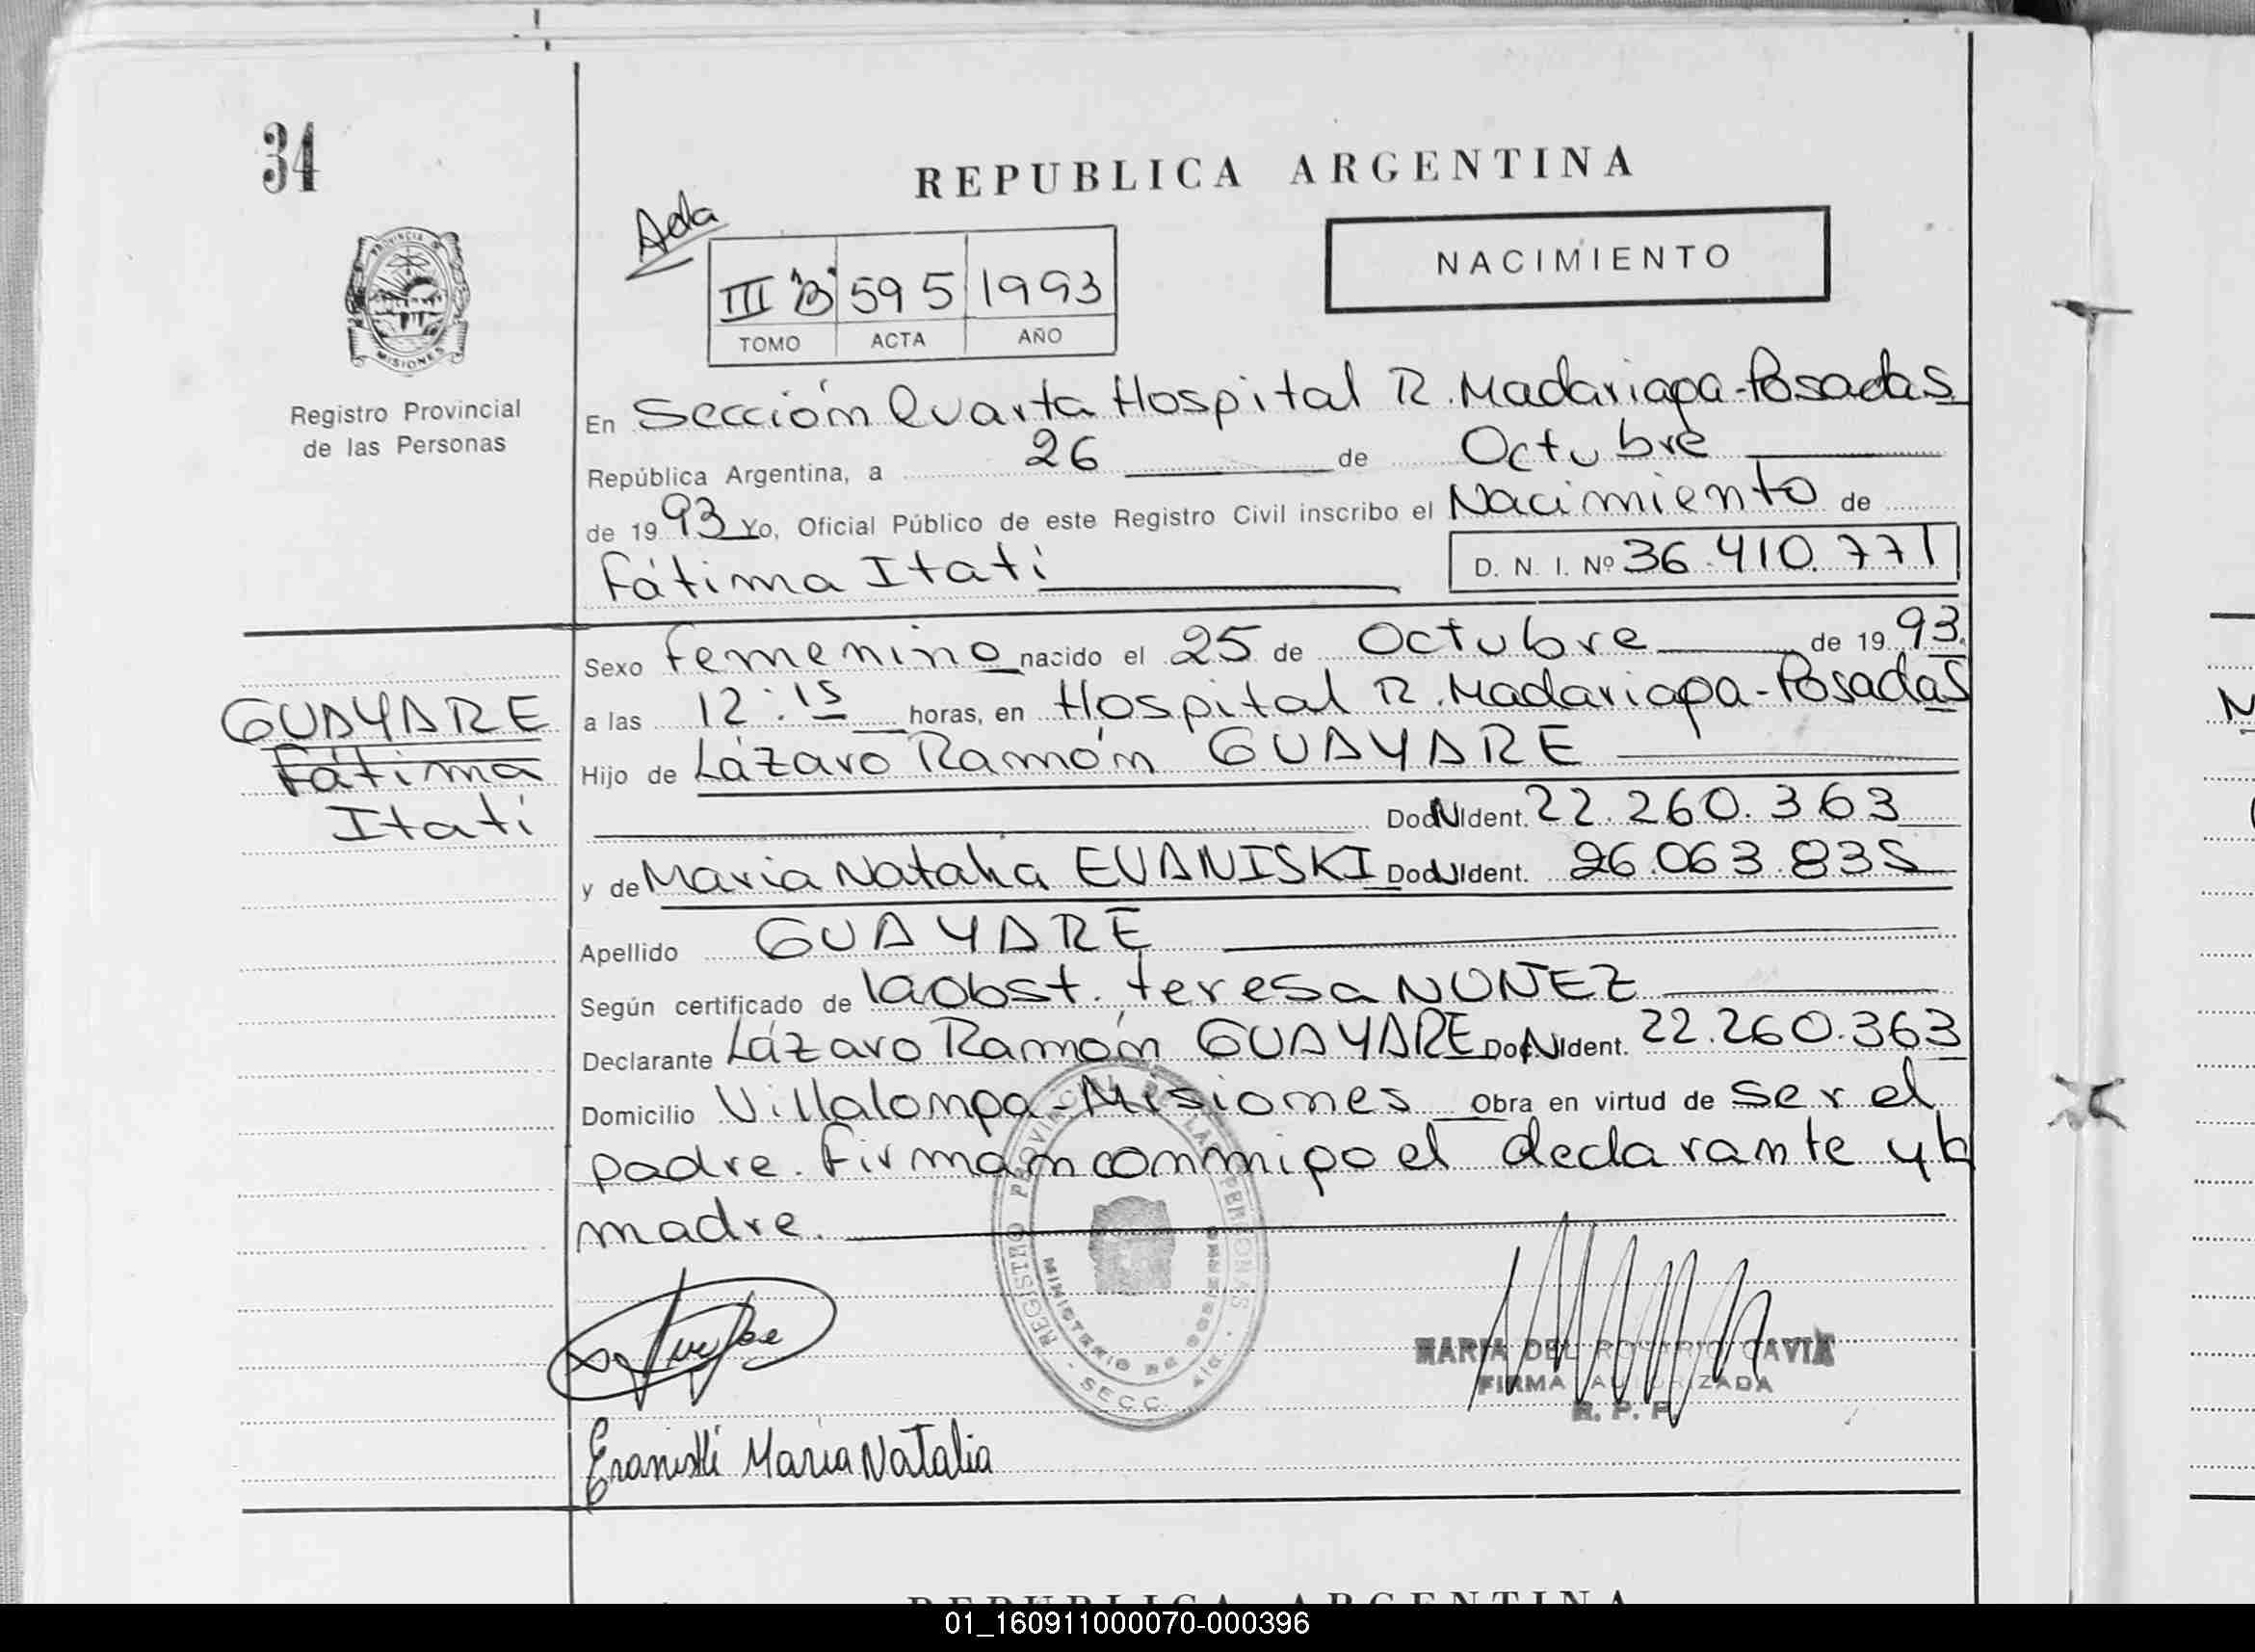 34
REPUBLICA ARGENTINA
Ada
NACIMIENTO
III B 595 1993
TOMO ACTA AÑO
PROVINCIA DE
MISIONES
Registro Provincial
de las Personas
En Sección Cuarta Hospital R. Madariaga-Posadas
República Argentina, a 26 de Octubre
de 1993 Yo, Oficial Público de este Registro Civil inscribo el Nacimiento de
Fátima Itatí D. N. I. Nº 36.410.771
Sexo femenino nacido el 25 de Octubre de 1993.
a las 12:15 horas, en Hospital R. Madariaga-Posadas
Hijo de Lázaro Ramón GUAYARE
Doc N Ident. 22.260.363
y de Maria Natalia EVANISKI Doc N Ident. 26.063.835
Apellido GUAYARE
Según certificado de la obst. teresa NUÑEZ
Declarante Lázaro Ramón GUAYARE Doc N Ident. 22.260.363
Domicilio Villalonga-Misiones Obra en virtud de ser el
padre. Firman conmigo el declarante y la
madre.
GUAYARE
Fátima
Itatí
REGISTRO PROVINCIAL DE LAS PERSONAS
MINISTERIO DE GOBIERNO
SECC. 4ta
MARIA DEL ROSARIO CAVIA
FIRMA AUTORIZADA
R. P. P.
Evaniski Maria Natalia
REPUBLICA ARGENTINA
01_160911000070-000396